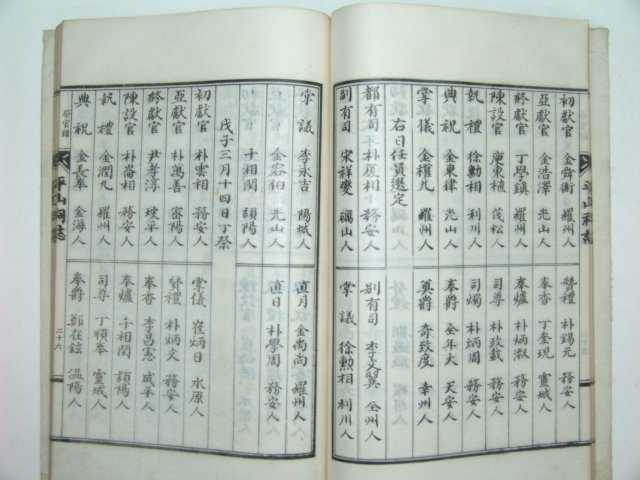 初獻官 金舜衡 羅州人
亞獻官 金浩澤 光山人
終獻官 丁學鎭 羅州人
陳設官 庾東植 茂松人
執禮 徐勳相 利川人
典祝 金東律 光山人
掌儀 金權九 羅州人
右日任員選定
都有司 朴 務安人
副有司 宋祥燮 礪山人
贊禮 朴錫元 務安人
奉香 丁奎現 靈城人
奉爐 朴炳淑 務安人
司尊 朴政載 務安人
司燭 朴炳周 務安人
奉爵 金年大 天安人
奠爵 奇致度 幸州人
別有司 李 全州人
掌議 徐勳相 利川人
平山祠誌
掌議 李永吉 陽城人
金容伯 光山人
千相閏 潁陽人
戊子三月十四日丁祭
初獻官 朴雲相 務安人
亞獻官 朴萬善 密陽人
終獻官 尹孝淳 坡平人
陳設官 朴崙相 務安人
執禮 金潤九 羅州人
典祝 金長奉 金海人
直月 金禹尚 羅州人
直日 朴學周 務安人
掌儀 崔炳日 水原人
贊禮 朴炳文 務安人
奉香 李昌憲 咸平人
奉爐 千相閏 潁陽人
司尊 丁順奉 靈城人
奉爵 鄭在鉉 溫陽人
祭官錄
平山祠誌
二十六